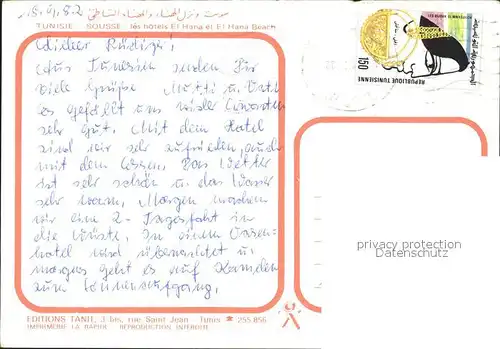 18.9.82
سوسة
TUNISIE SOUSSE les hôtels El Hana et El Hana Beach
Lieber Rüdiger,
Aus Tunesien senden Dir
viele Grüße Mutti u.
es gefällt uns wider Erwarten
sehr gut. Mit dem Hotel
sind wir sehr zufrieden, auch
mit dem Essen. Das Wetter
ist sehr schön u. das Wasser
sehr warm. Morgen machen
wir eine 2-Tagesfahrt in
die Wüste. In einem Oasen-
hotel wird übernachtet u.
morgens geht es auf Kamelen
zum Sonnenaufgang.
150
REPUBLIQUE TUNISIENNE
privacy protection
Datenschutz
EDITIONS TANIT, 3 bis, rue Saint Jean - Tunis ★ 255.856
IMPRIMERIE LA RAPIDE REPRODUCTION INTERDITE